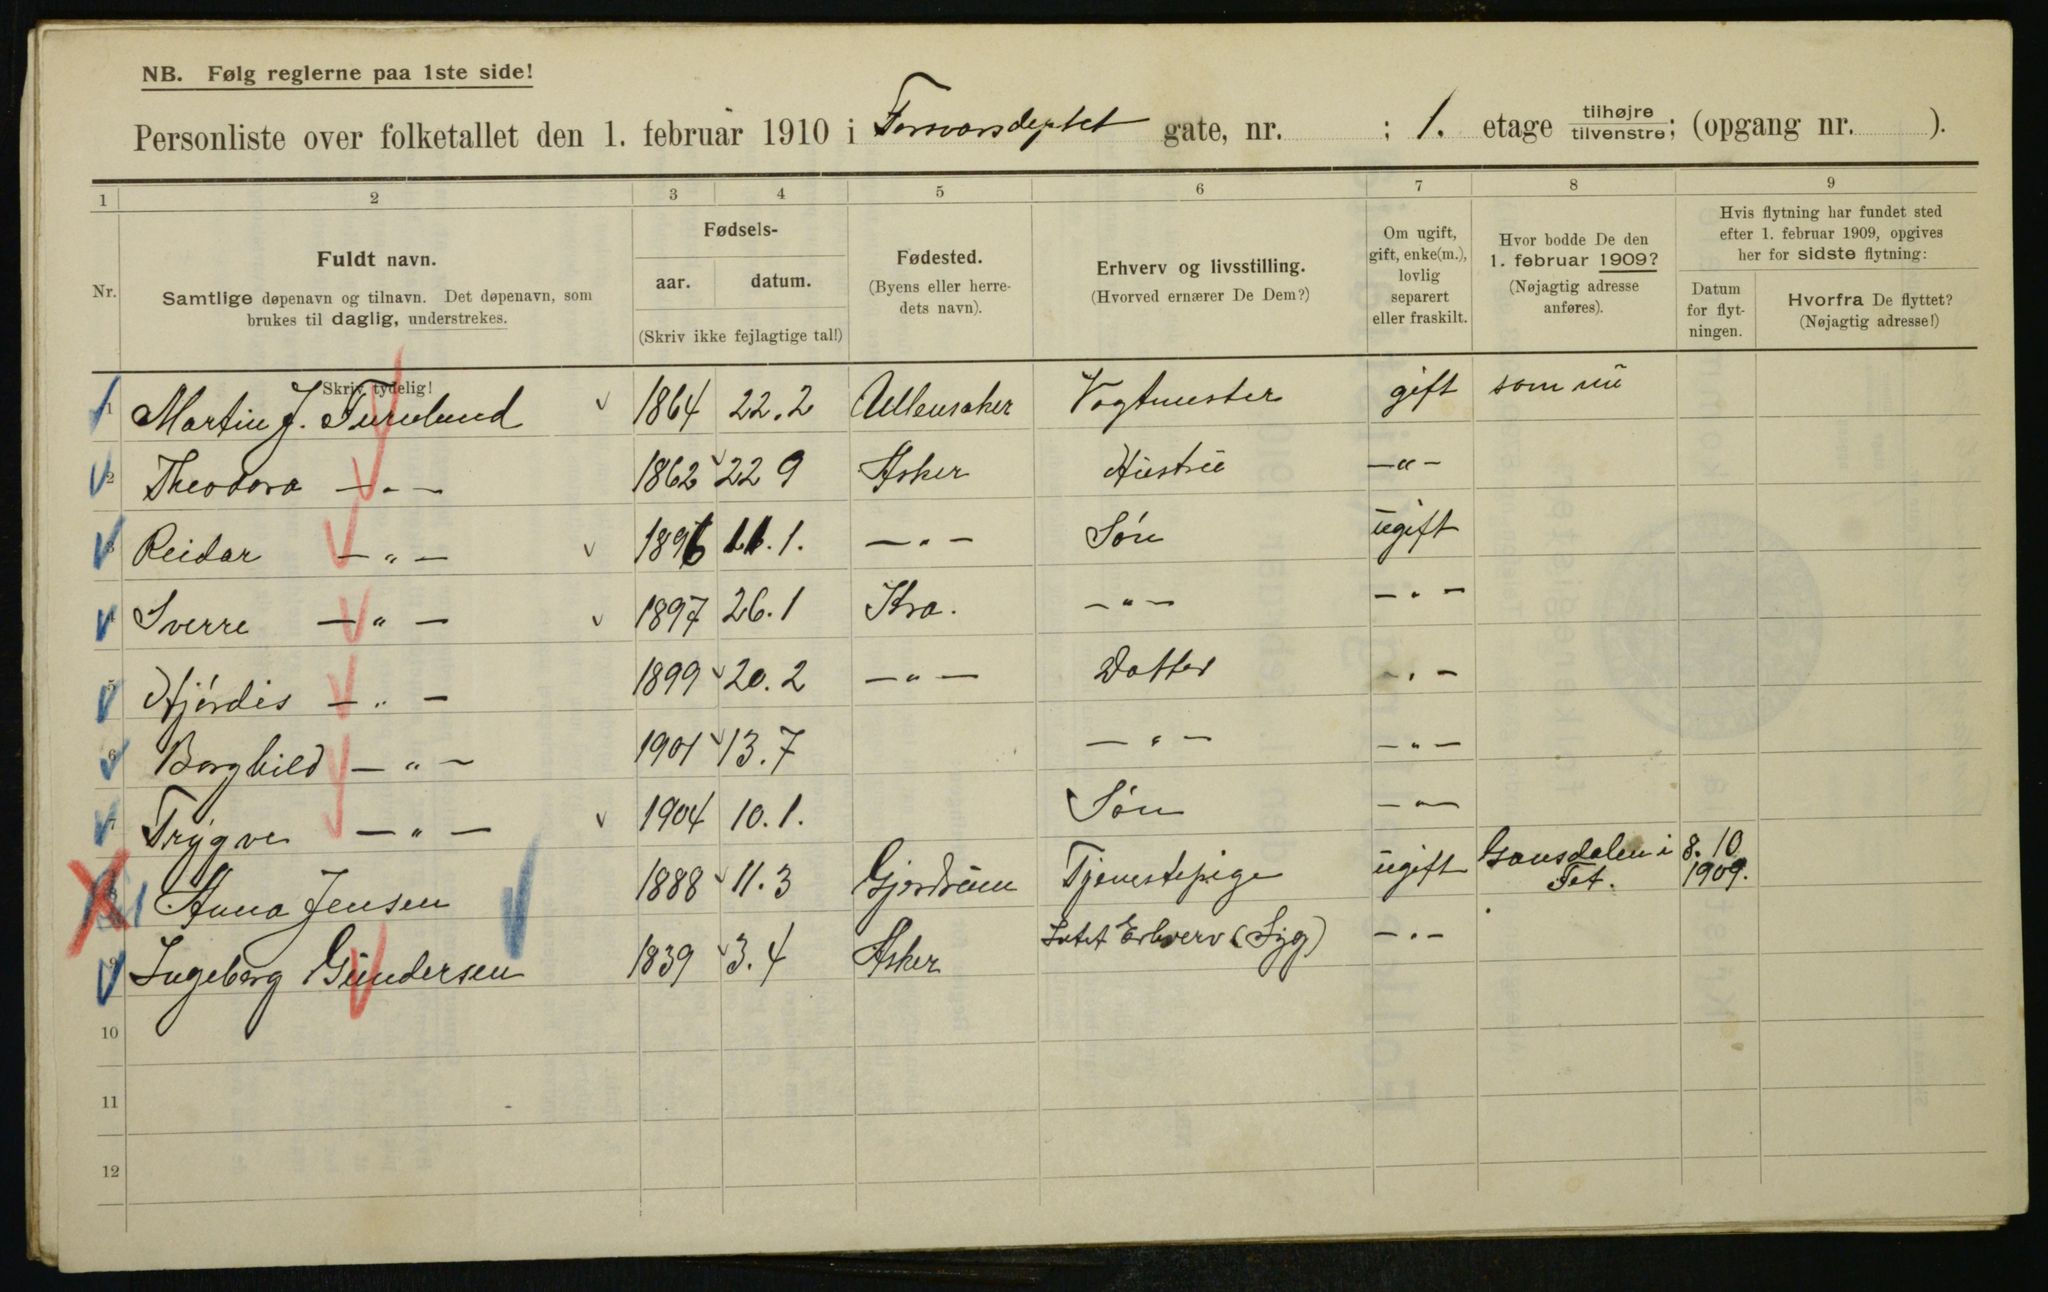 NB. Følg reglerne paa 1ste side!
Personliste over folketallet den 1. februar 1910 i Forsvarsdeptet gate, nr. ; 1. etage tilhøjre/tilvenstre; (opgang nr. ).
1 2 3 4 5 6 7 8 9
Nr.
Fuldt navn.
Samtlige døpenavn og tilnavn. Det døpenavn, som
brukes til daglig, understrekes.
Skriv tydelig!
Fødsels-
aar. datum.
(Skriv ikke fejlagtige tal!)
Fødested.
(Byens eller herre-
dets navn).
Erhverv og livsstilling.
(Hvorved ernærer De Dem?)
Om ugift,
gift, enke(m.),
lovlig
separert
eller fraskilt.
Hvor bodde De den
1. februar 1909?
(Nøjagtig adresse
anføres).
Hvis flytning har fundet sted
efter 1. februar 1909, opgives
her for sidste flytning:
Datum
for flyt-
ningen.
Hvorfra De flyttet?
(Nøjagtig adresse!)
1 Martin J. 1864 22.2 Ullensaker Vogtmester gift som nu
2 Theodora —"— 1862 22 9 Asker Hustru —"—
3 Reidar —"— 1896 11.1. —"— Søn ugift
4 Sverre —"— 1897 26.1 Kra. —"— —"—
5 Hjørdis —"— 1899 20.2 —"— Datter —"—
6 Borghild —"— 1901 13.7 —"— —"—
7 Trygve —"— 1904 10.1. Søn —"—
8 Anna Jensen 1888 11.3 Gjerdrum Tjenestepige ugift Gansdalen i Fet. 8.10 1909.
9 Ingeborg Gundersen 1839 3.4 Asker Intet Erhverv (Syg) —"—
10
11
12